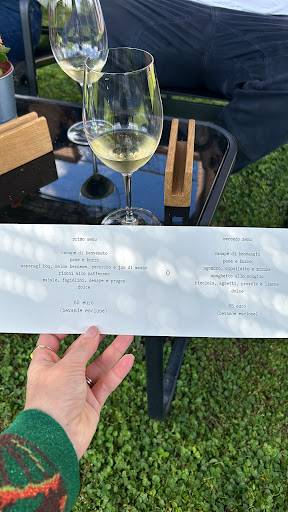 primo menu
canapè di benvenuto
pane e burro
asparagi bbq, salsa bernese, pecorino e jus di manzo
risoni allo zafferano
maiale, fagiolini, senape e prugna
dolce
60 euro
(bevande escluse)
o
secondo menu
canapè di benvenuto
pane e burro
sgombro,
spaghetto allo scoglio
ricciola, agretti,
dolce
65 euro
(bevande escluse)